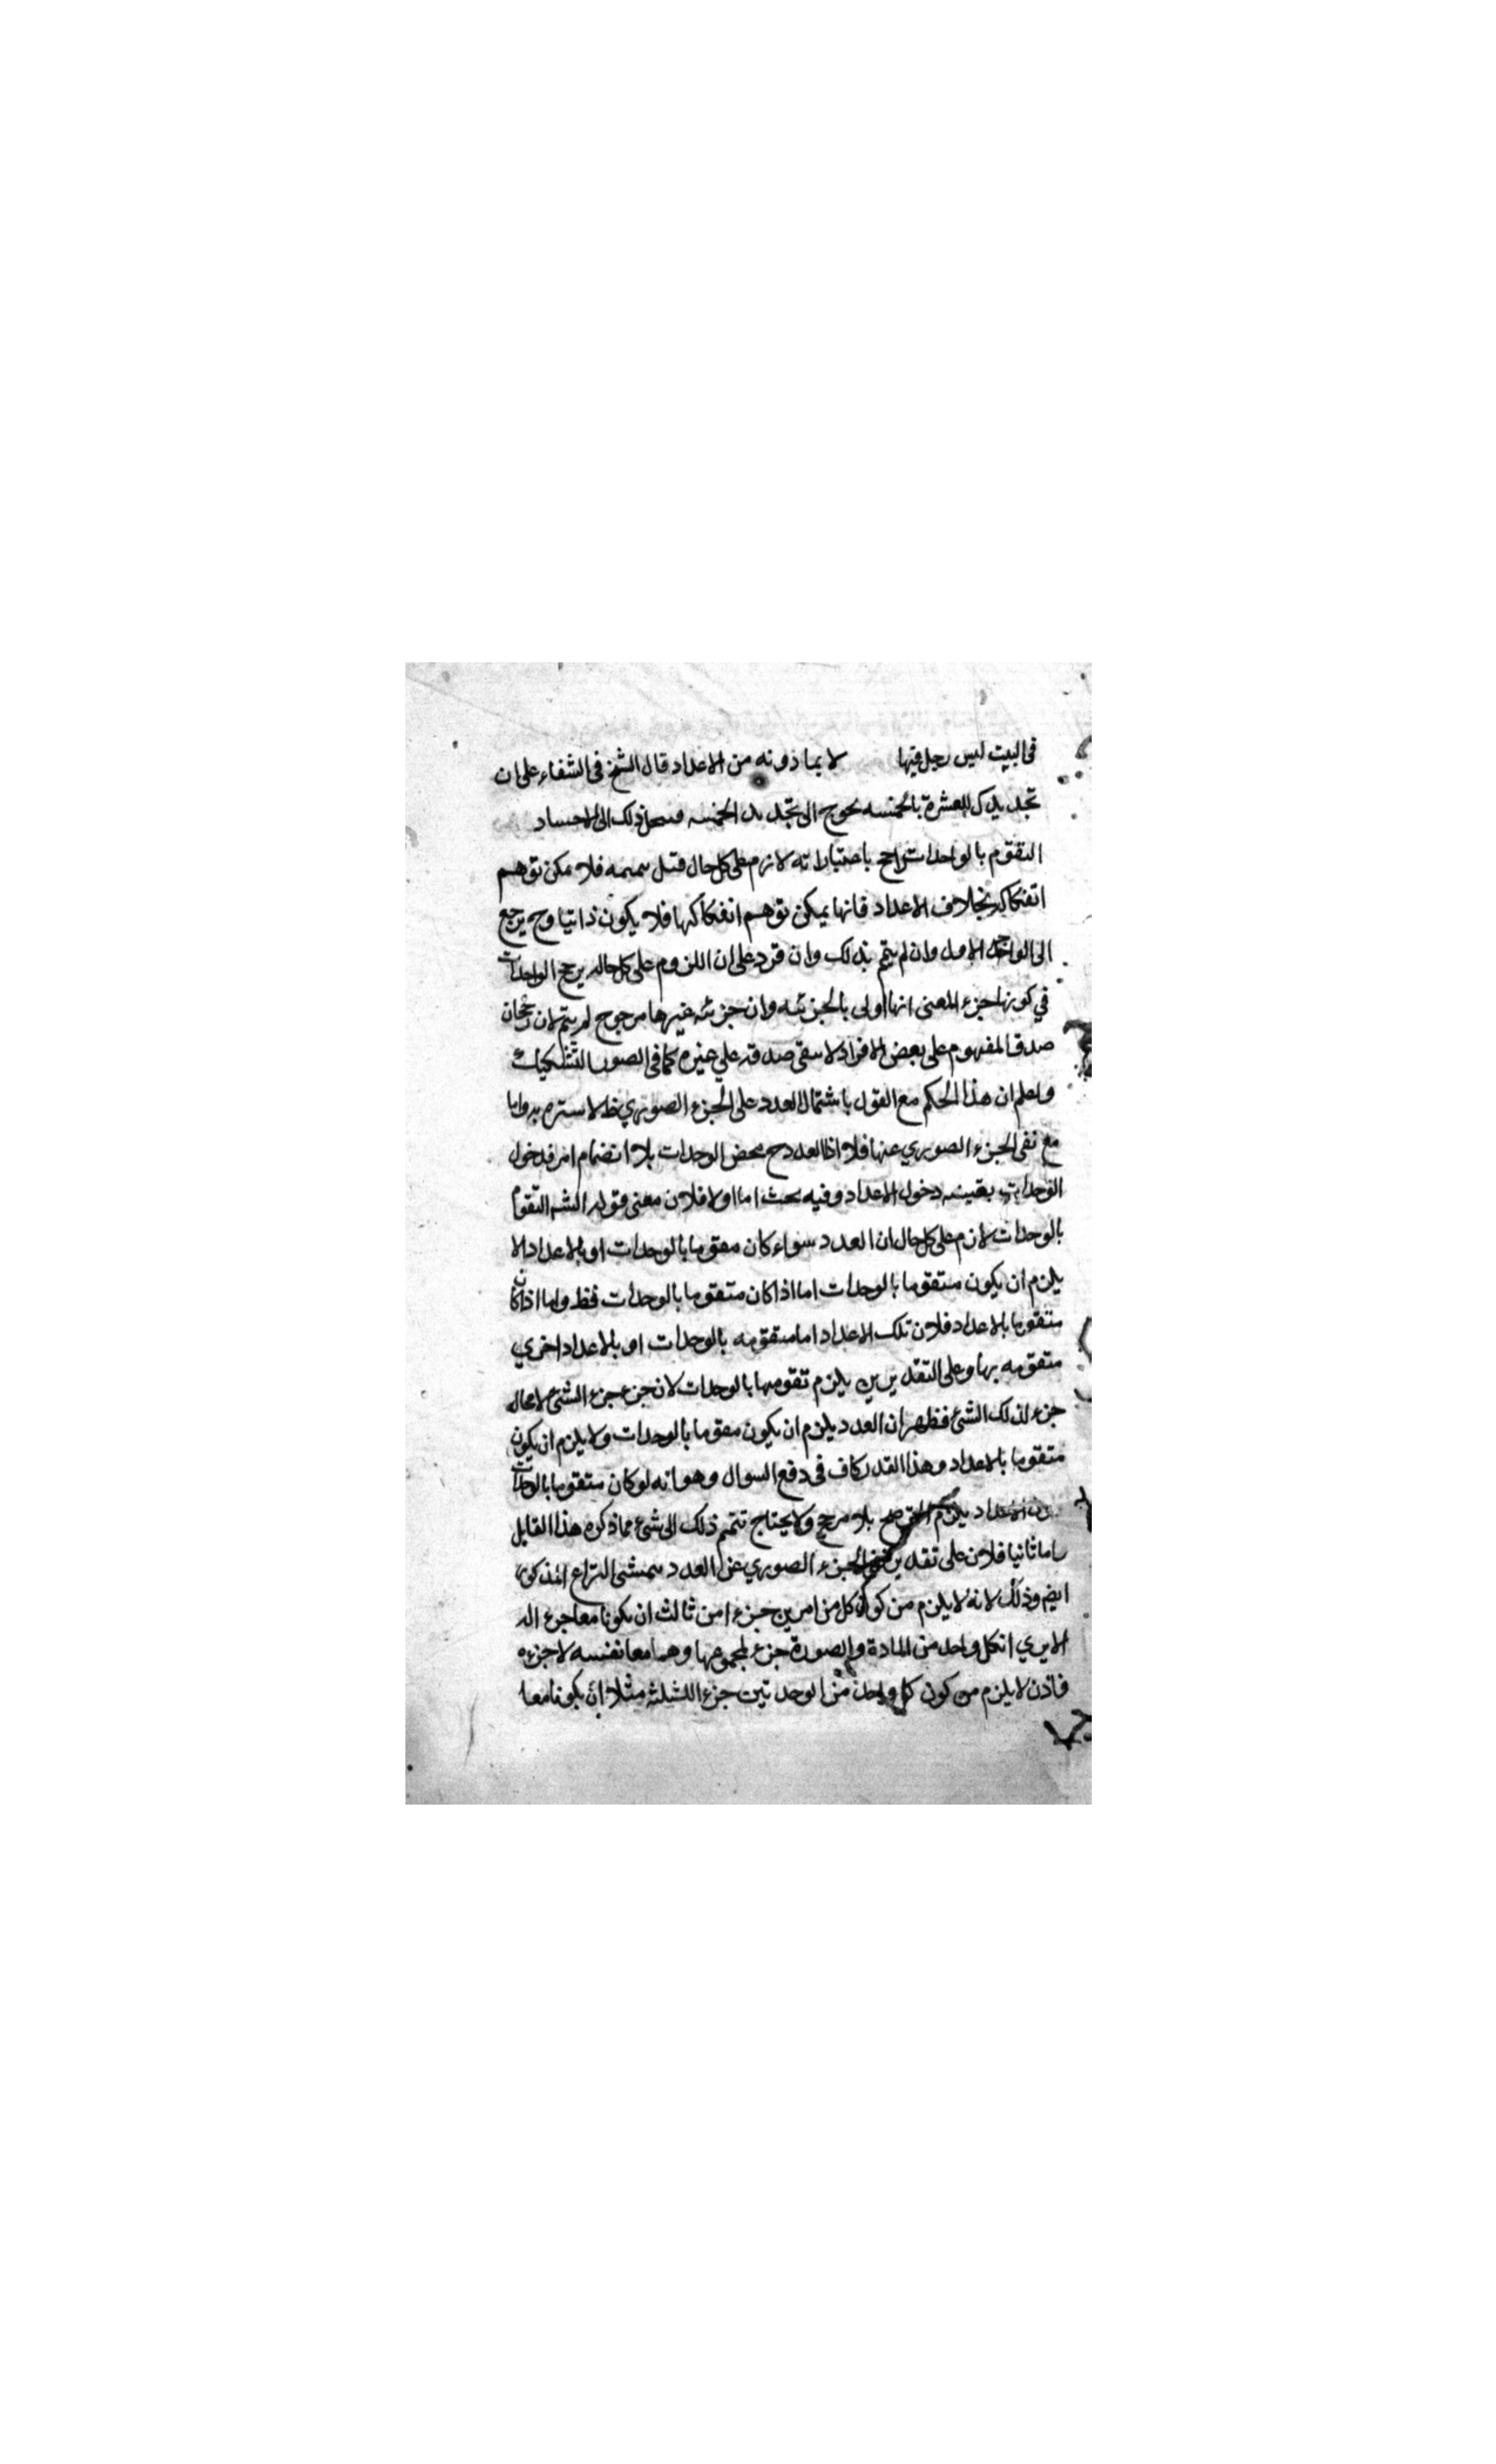 فى البيت ليس رجل فيها لا بما دونه من الاعداد قال الشيخ فى الشفاء على ان
تحديدك للعشرة بالخمسه يحوج الى تحديد الخمسه ذلك الى الاحساد
التقوم بالواحدات راجح باعتبار انه لازم على كل حال فلا يمكن توهم
انفكاكه بخلاف الاعداد فانها يمكن توهم انفكاكها فلا يكون ذاتيا وح يرجع
الى الواحد الاول وان لم يتم بذلك وان قرد على ان اللزوم على كل حال يرجح الواحدات
في كونها جزء المعنى انها اولى بالجزئيه وان جزئيه غيرها مرجوح لم يتم لان رجحان
صدق المفهوم على بعض الافراد لا صدقه علي غيره كما فى الصور التشكيك
واعلم ان هذا الحكم مع القول باشتمال العدد على الجزء الصوري ظ لا واما
مع نفى الجزء الصوري عنها فلا اذ العدد ح محض الوحدات بلا انضمام امر فدخول
الوحدات بعينه دخول الاعداد وفيه بحث اما اولا فلان معنى قوله الشه التقوم
بالوحدات لازم على كل حال ان العدد سواء كان مقوما بالوحدات او بالاعداد لا
يلزم ان يكون متقوما بالوحدات اما اذا كان متقوما بالوحدات فظ واما اذا كان
متقوما بالاعداد فلان تلك الاعداد اما متقومه بالوحدات او بالاعداد اخري
متقومه بها وعلى التقديرين يلزم تقومها بالوحدات لان جزء جزء الشئ لامحاله
جزء لذلك الشئ فظهر ان العدد يلزم ان يكون مقوما بالوحدات ولا يلزم ان يكون
متقوما بالاعداد وهذا القدر كاف فى دفع السوال وهو انه لو كان متقوما بالوحدات
الاعداد يلزم بلا مرجح ولا يحتاج تتميم ذلك الى شئ مما ذكره هذا القايل
واما ثانيا فلان على تقدير نفى الجزء الصوري عن العدد يتمشى النزاع المذكور
ايضم وذلك لانه لا يلزم من كون كل من امرين جزء امن ثالث ان يكونا معا جزء اله
الا يري ان كل واحد من المادة والصورة جزء لمجموعها وهما معا نفسه لا جزءه
فاذن لا يلزم من كون كل واحد من الوحدتين جزء الثلثه مثلا ان يكونا معا